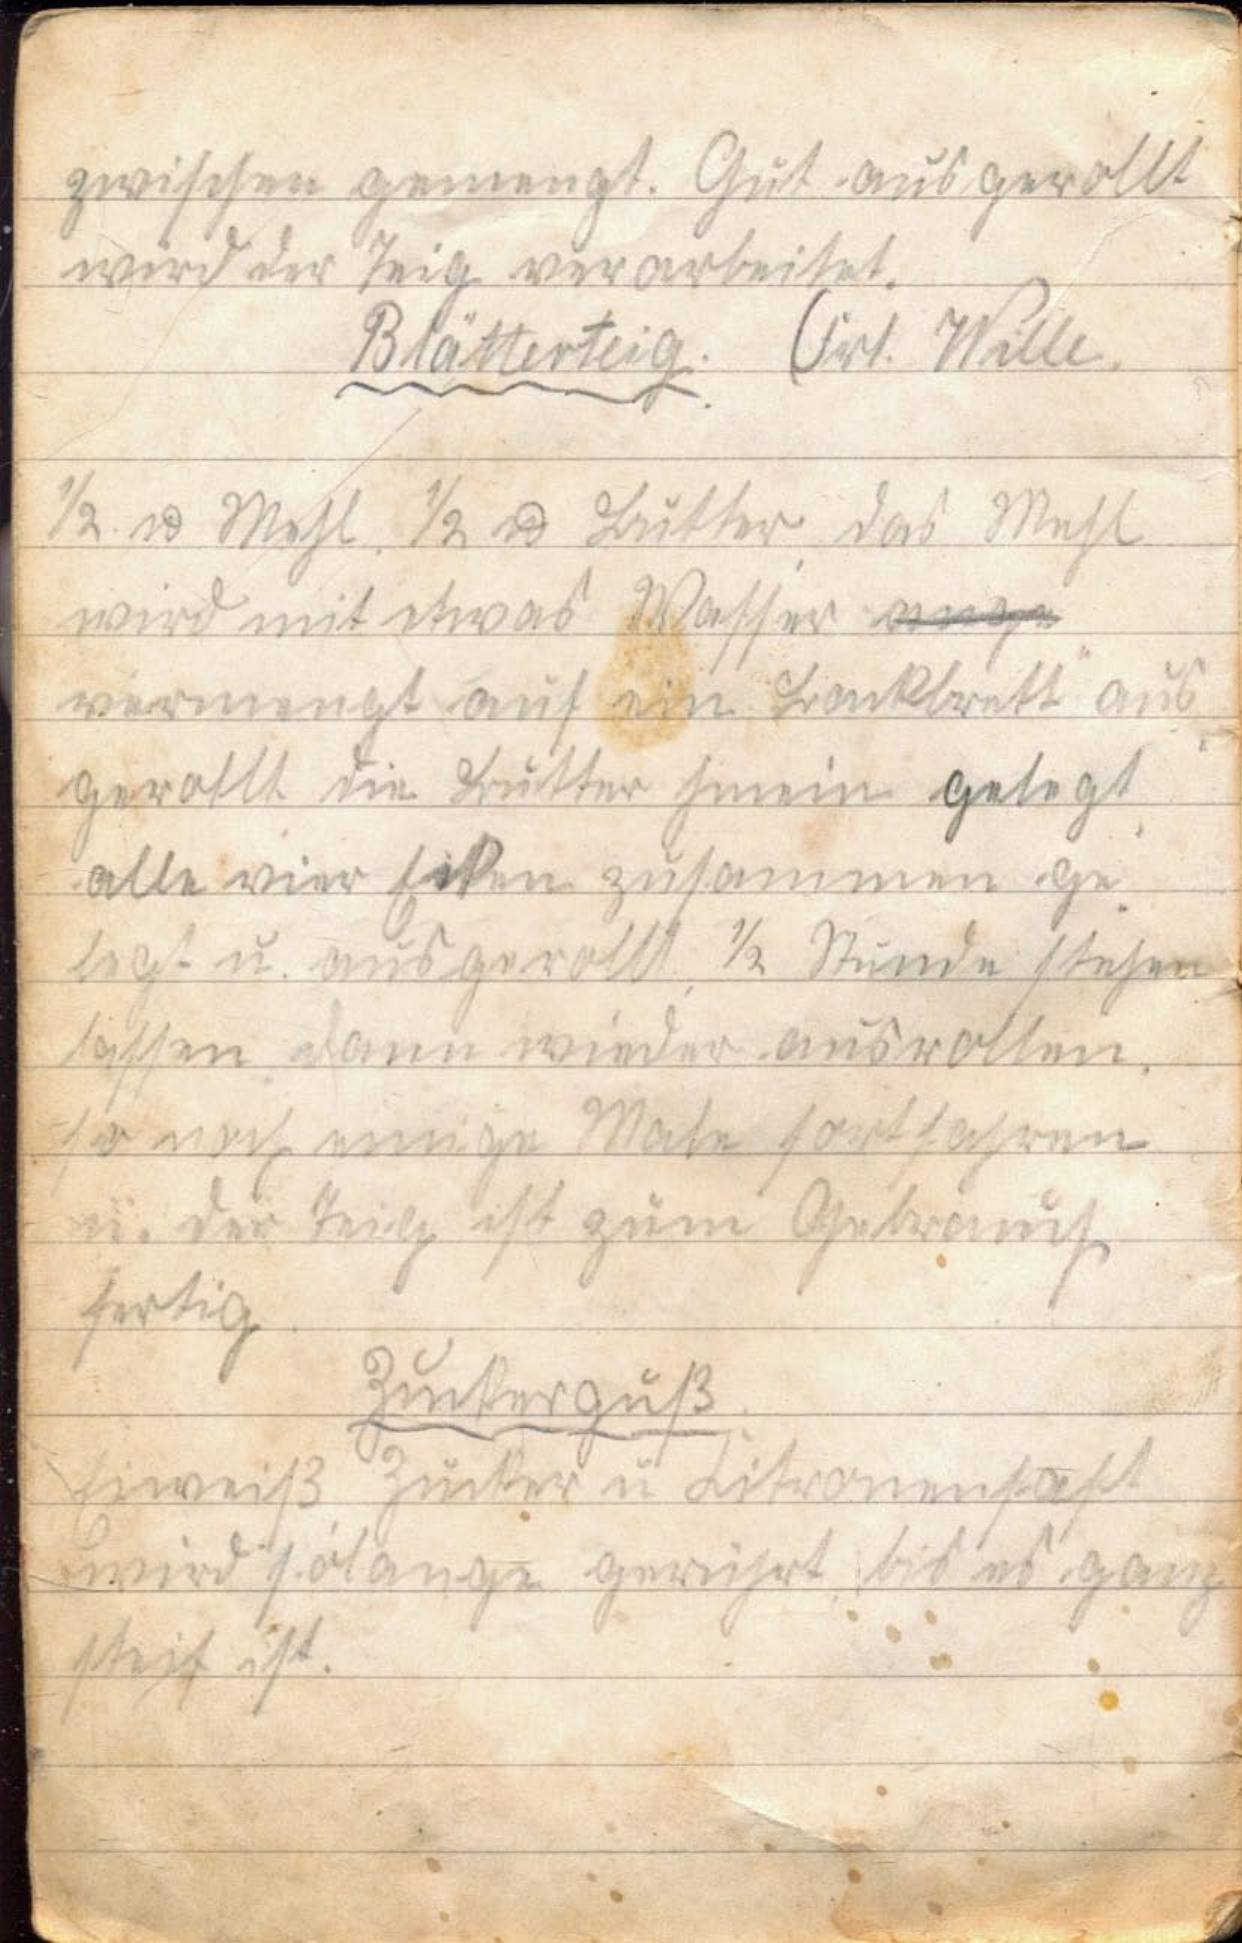 zwischen gemengt. Gut ausgerollt
wird der Teig verarbeitet.
Blätterteig. (Frl. Wille.
1/2 ℔ Mehl. 1/2 ℔ Butter das Mehl
wird mit etwas Wasser ange
vermengt auf ein Backbrett aus
gerollt die Butter hinein gelegt
alle vier Ecken zusammen ge
legt u. ausgerollt, 1/2 Stunde stehen
lassen dann wieder ausrollen.
so noch einige Male fortfahren
u. der Teig ist zum Gebrauch
fertig.
Zuckerguß.
Eiweiß Zucker u Citronensaft
wird solange gerührt, bis es ganz
steif ist.